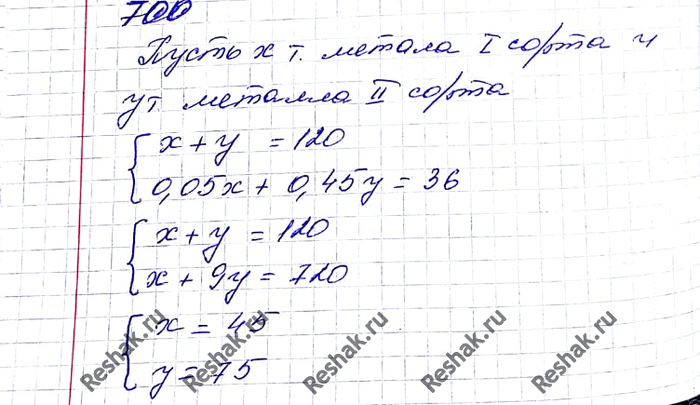 700
Пусть x т. метала I сорта и
y т. металла II сорта
x + y = 120
0,05x + 0,45y = 36
x + y = 120
x + 9y = 720
x = 45
y = 75
Reshak.ru Reshak.ru Reshak.ru Reshak.ru Reshak.ru